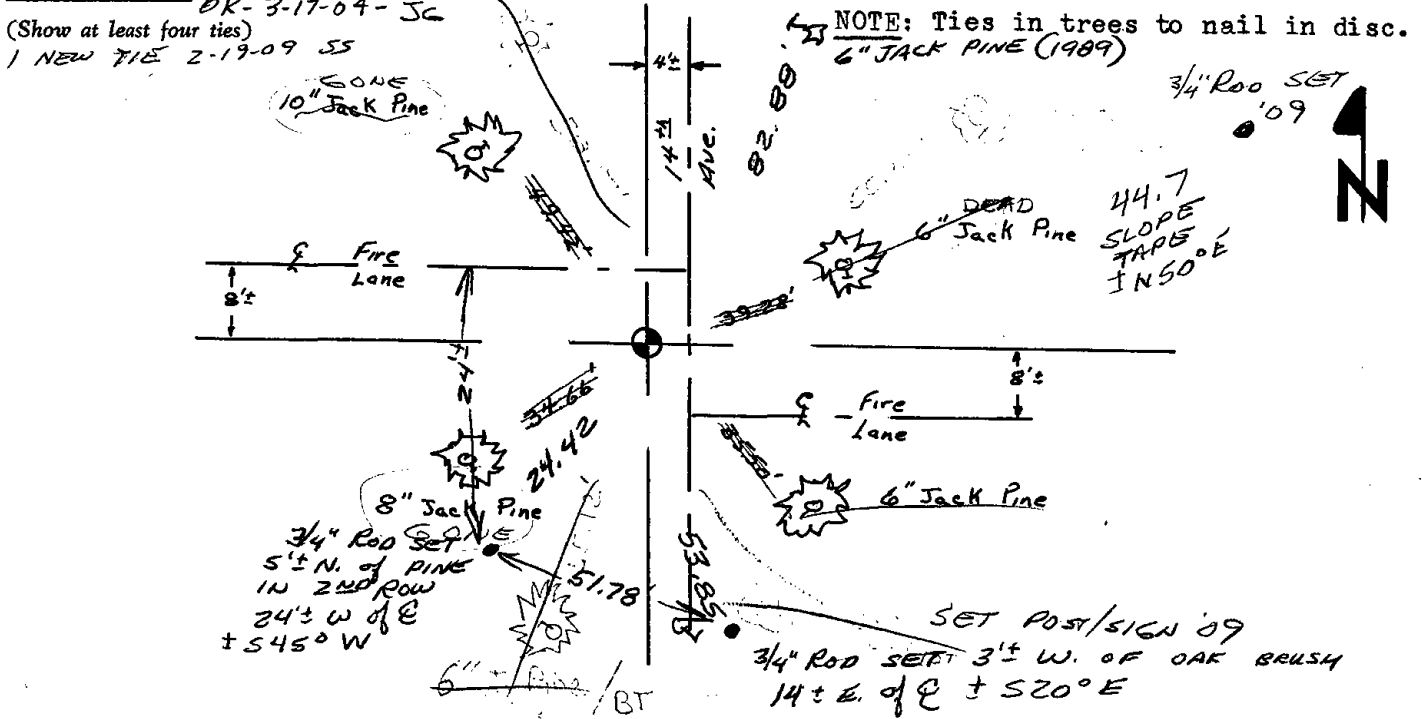 OK- 3-17-04- JG
(Show at least four ties)
1 NEW TIE 2-19-09 SS
NOTE: Ties in trees to nail in disc.
6" JACK PINE (1989)
82.88'
4'±
14th Ave.
3/4" ROD SET
'09
N
GONE
10" Jack Pine
49.42
DEAD
6" Jack Pine
44.7
SLOPE
TAPE
± N50°E
39.28'
℄ Fire
Lane
8'±
24'±
34.66
24.42
8'±
℄ Fire
Lane
8" Jack Pine
6" Jack Pine
3/4" ROD SET
5'± N. of PINE
IN 2ND ROW
24'± W of ℄
± S45° W
51.78
53.85
SET POST/SIGN '09
3/4" ROD SET 3'± W. OF OAK BRUSH
14± E. of ℄ ± S20°E
6"± Pine / BT